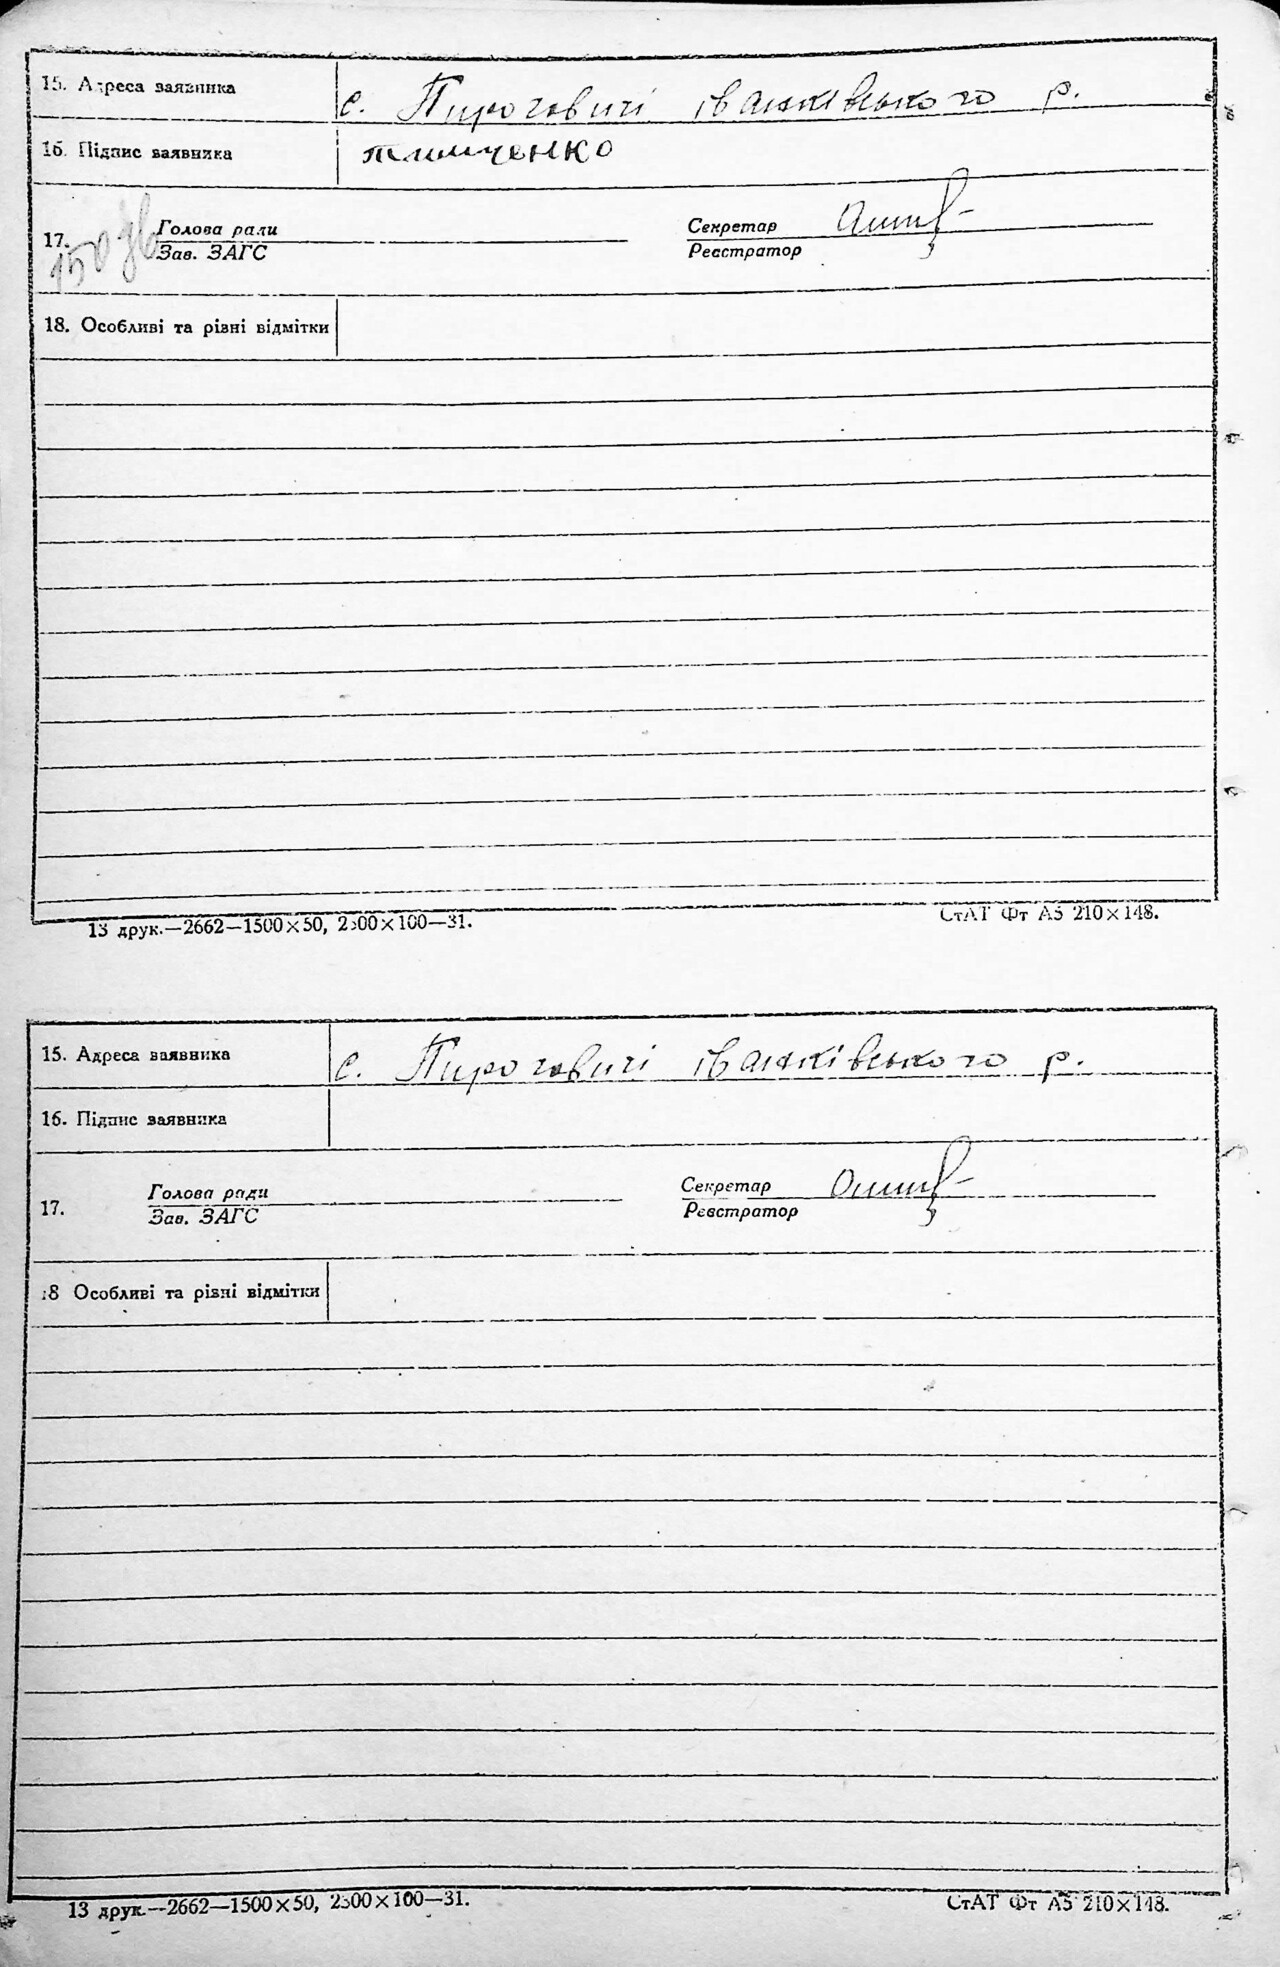 15. Адреса заявника с. Пироговичі іванківського р.
16. Підпис заявника тимченко
Голова ради Секретар
17. Зав. ЗАГС Реєстратор
18. Особливі та різні відмітки
13 друк.—2662—1500×50, 2300×100—31. СтАТ Фт А5 210×148.
15. Адреса заявника с. Пироговичі іванківського р.
16. Підпис заявника
Голова ради Секретар
17. Зав. ЗАГС Реєстратор
18 Особливі та різні відмітки
13 друк.—2662—1500×50, 2300×100—31. СтАТ Фт А5 210×148.